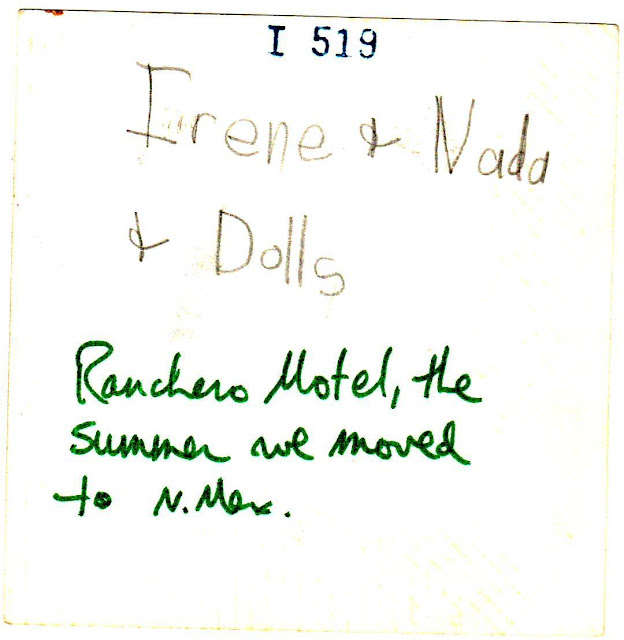 I 519
Irene & Nada
& Dolls
Ranchero Motel, the
summer we moved
to N. Mex.